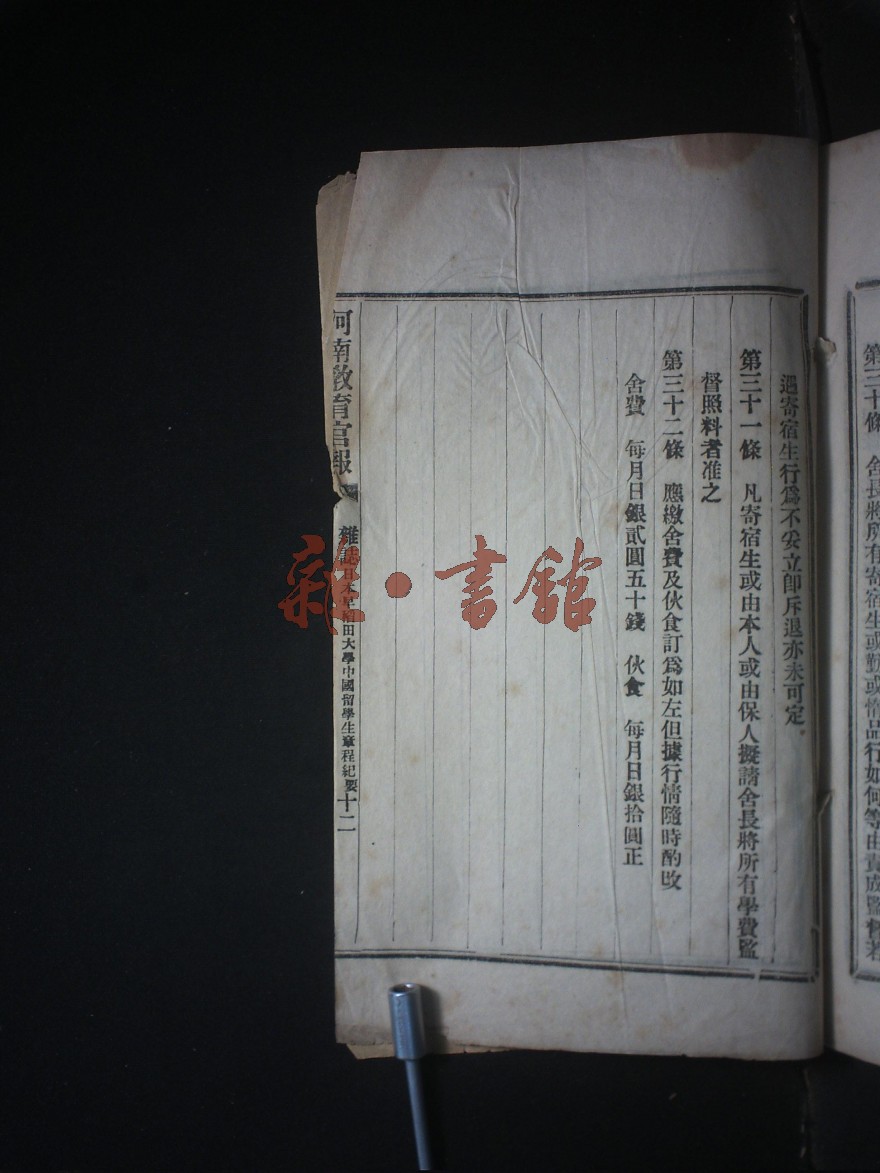 第三十條　舍長將所有寄宿生或勤或惰品行如何等由責成監督若
遇寄宿生行爲不妥立卽斥退亦未可定
第三十一條　凡寄宿生或由本人或由保人擬請舍長將所有學費監
督照料者准之
第三十二條　應繳舍費及伙食訂爲如左但據行情隨時酌改
舍費　每月日銀貳圓五十錢　伙食　每月日銀拾圓正
河南敎育官報　雜誌　日本早稻田大學中國留學生章程紀要　十二
雜·書館